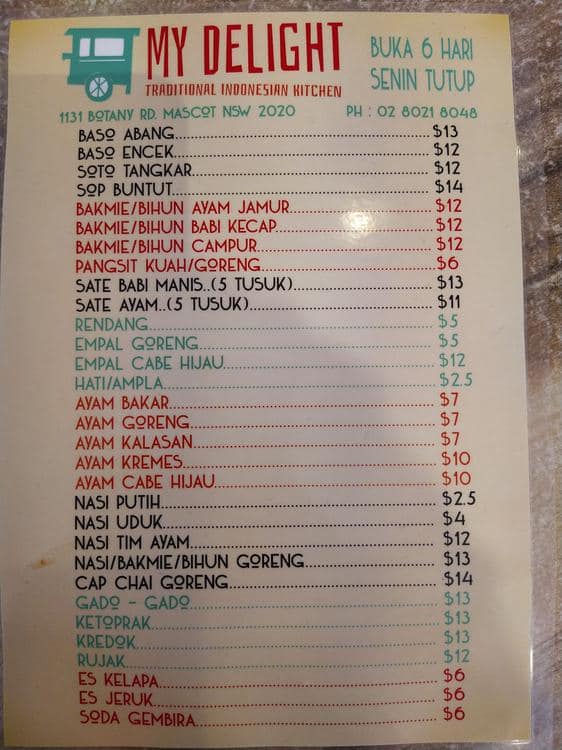 MY DELIGHT
TRADITIONAL INDONESIAN KITCHEN
BUKA 6 HARI
SENIN TUTUP
1131 BOTANY RD. MASCOT NSW 2020 PH : 02 8021 8048
BASO ABANG $13
BASO ENCEK $12
SOTO TANGKAR $12
SOP BUNTUT $14
BAKMIE/BIHUN AYAM JAMUR $12
BAKMIE/BIHUN BABI KECAP $12
BAKMIE/BIHUN CAMPUR $12
PANGSIT KUAH/GORENG $6
SATE BABI MANIS..(5 TUSUK) $13
SATE AYAM..(5 TUSUK) $11
RENDANG $5
EMPAL GORENG $5
EMPAL CABE HIJAU $12
HATI/AMPLA $2.5
AYAM BAKAR $7
AYAM GORENG $7
AYAM KALASAN $7
AYAM KREMES $10
AYAM CABE HIJAU $10
NASI PUTIH $2.5
NASI UDUK $4
NASI TIM AYAM $12
NASI/BAKMIE/BIHUN GORENG $13
CAP CHAI GORENG $14
GADO - GADO $13
KETOPRAK $13
KREDOK $13
RUJAK $12
ES KELAPA $6
ES JERUK $6
SODA GEMBIRA $6